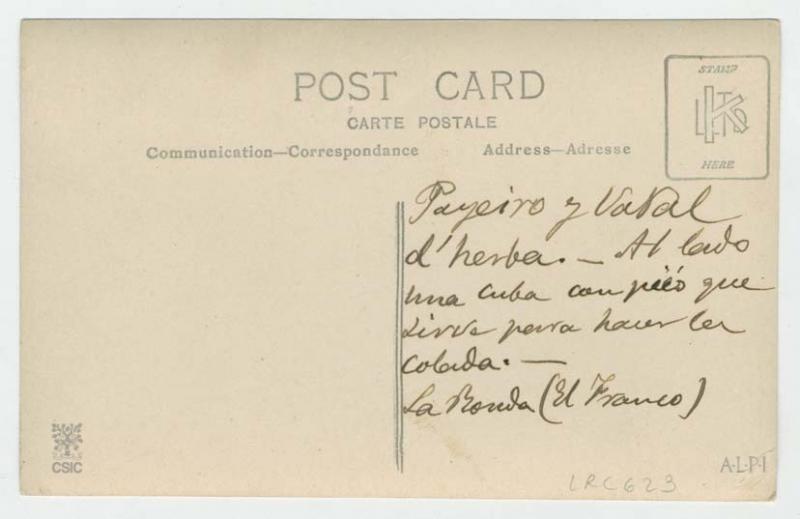 POST CARD
CARTE POSTALE
Communication—Correspondance
Address—Adresse
STAMP
HERE
Payeiro y VaVal
d'herba. — Al lado
una cuba con que
sirve para hacer la
colada. —
La Ronda (El Franco)
CSIC
A·L·P·I
LRC623